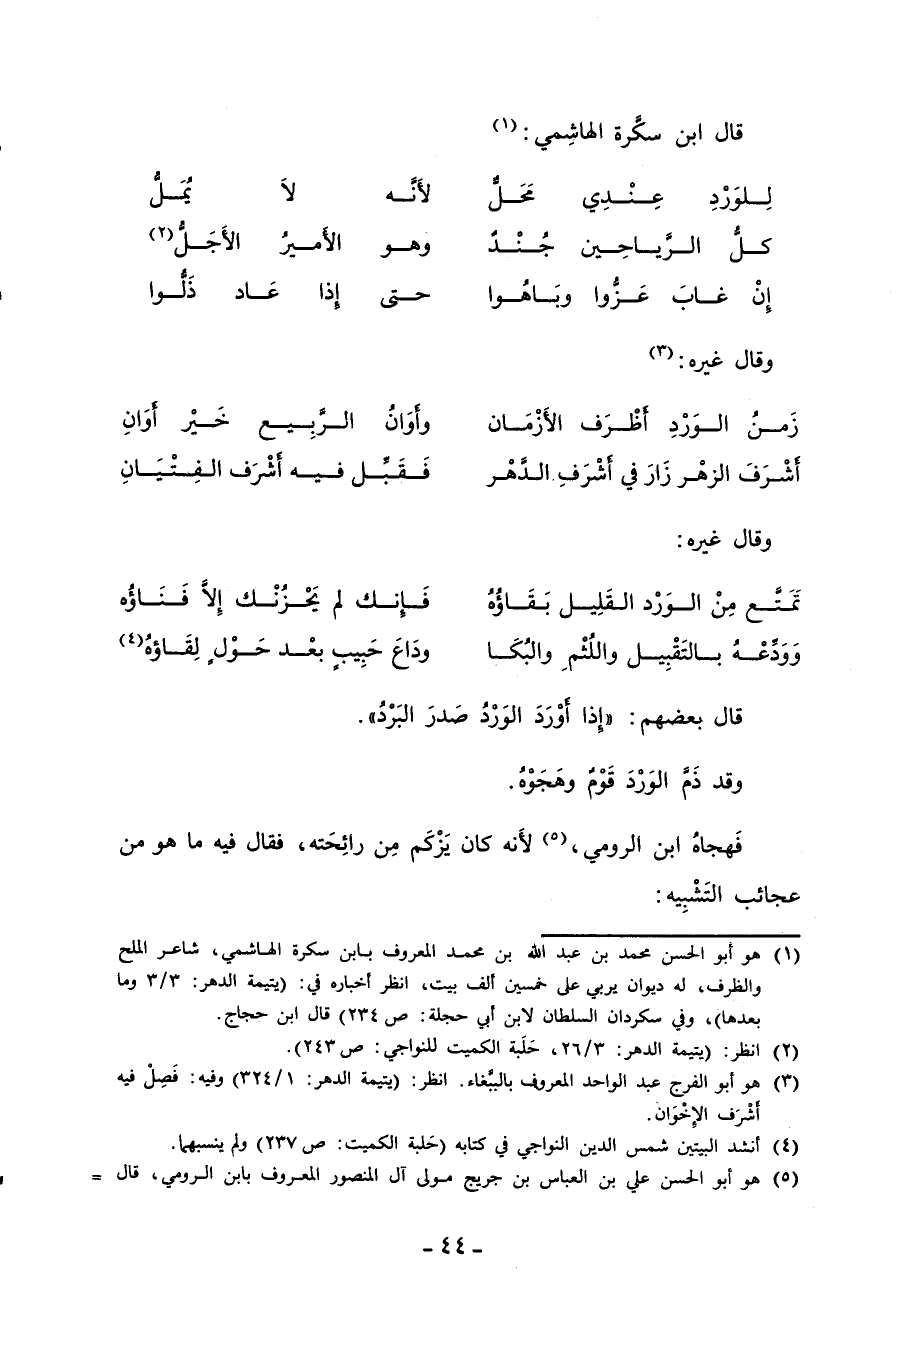 قال ابن سكَّرة الهاشِمي: (١)
لِلوَرْدِ عِنْدِي مَحَلٌّ لأَنَّه لاَ يُمَلُّ
كلُّ الرَّياحِين جُنْدٌ وهو الأميرُ الأجَلُّ(٢)
إنْ غابَ عَزُّوا وبَاهُوا حتى إذا عَاد ذَلُّوا
وقال غيره: (٣)
زَمنُ الوَرْدِ أظْرَف الأزْمَان وأَوَانُ الرَّبِيع خَيْر أَوَانِ
أشْرَفَ الزهْر زَارَ في أشْرَفِ الدَّهْر فَقَبِّل فيه أشْرَف الفِتْيَانِ
وقال غيره:
تَمَتَّع مِنْ الوَرْد القَلِيل بَقَاؤُهُ فَإنك لم يَحْزُنْك إلاَّ فَنَاؤُه
وَوَدِّعْهُ بالتَقْبِيل واللُثْمِ والبُكَا ودَاعَ حَبِيبٍ بعْد حَوْلٍ لِقَاؤهُ(٤)
قال بعضهم: «إذا أَوْرَدَ الوَرْدُ صَدرَ البَرْدُ».
وقد ذَمَّ الوَرْدَ قَوْمٌ وهَجَوْهُ.
فَهجاهُ ابن الرومي، (٥) لأنه كان يَزْكَم مِن رائِحَته، فقال فيه ما هو من
عجائب التَشْبِيه:
(١) هو أبو الحسن محمد بن عبد الله بن محمد المعروف بابن سكرة الهاشمي، شاعر الملح
والظرف، له ديوان يربي على خمسين ألف بيت، انظر أخباره في: (يتيمة الدهر: ٣/٣ وما
بعدها)، وفي سكردان السلطان لابن أبي حجلة: ص ٢٣٤) قال ابن حجاج.
(٢) انظر: (يتيمة الدهر: ٢٦/٣، حَلَبة الكميت للنواجي: ص ٢٤٣).
(٣) هو أبو الفرج عبد الواحد المعروف بالبَّغاء. انظر: (يتيمة الدهر: ٣٢٤/١) وفيه: فَصِلْ فيه
أشْرَف الإخْوَان.
(٤) أنشد البيتين شمس الدين النواجي في كتابه (حَلبة الكميت: ص ٢٣٧) ولم ينسبهما.
(٥) هو أبو الحسن علي بن العباس بن جريج مولى آل المنصور المعروف بابن الرومي، قال =
- ٤٤ -